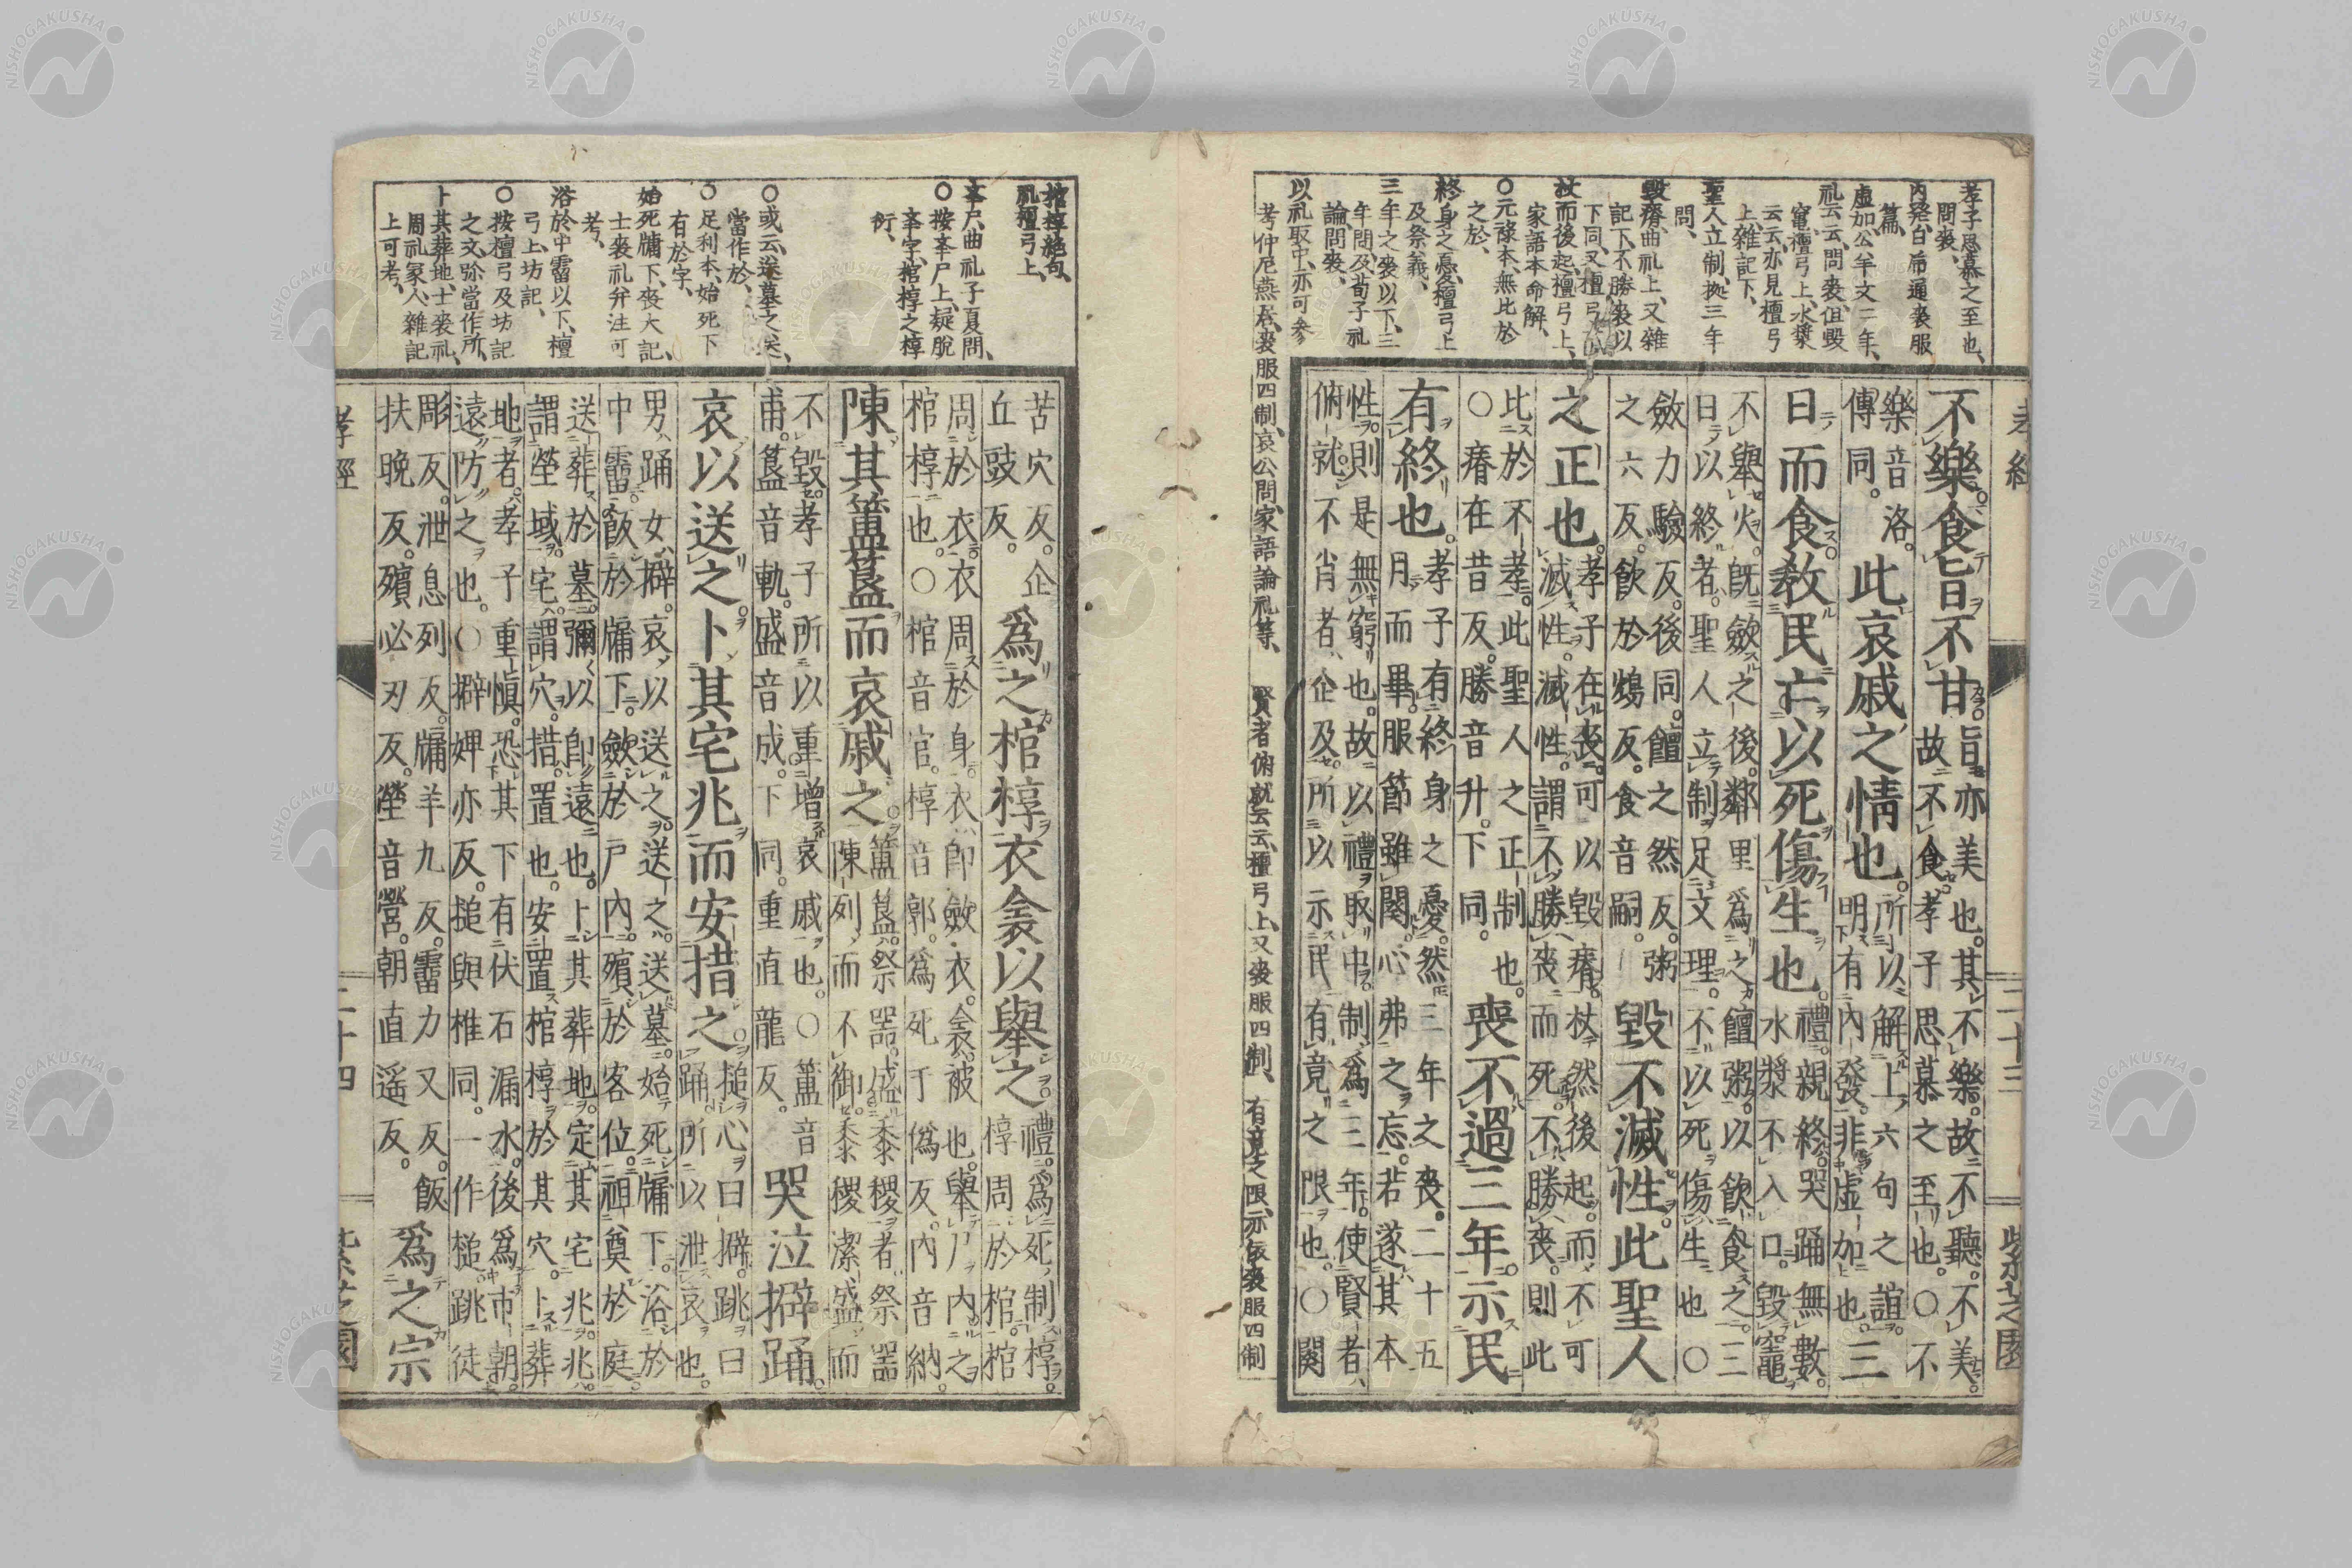 孝子思慕之至也、
問喪、
内発、白虎通喪服
篇、
虚加公羊文二年、
礼云云、問喪、但毀
竃檀弓上、水漿
云云、亦見檀弓
上、雜記下、
聖人立制、拠三年
問、
毀瘠、曲礼上、又雜
記下、不勝喪以
下同、又檀弓
杖而後起、檀弓上、
家語本命解、
○元祿本、無比於
之於、
終身之憂、檀弓上
及祭義、
三年之喪以下、三
年問、及荀子礼
論、問喪、
以礼取中、亦可参
考仲尼燕居、喪服四制、哀公問、家語論礼等、賢者俯就云云、檀弓上、又喪服四制、有竟之限、亦依喪服四制
孝經 二十三 紫芝園
不樂食旨不甘。旨亦美也。其不樂。故不聽。不美。
故不食。孝子思慕之至也。○不
樂音洛。
傳同。
此哀戚之情也。所以解上六句之誼。
明有內發。非虛加也。三
日而食。教民亡以死傷生也。禮。親終。哭踊無數。
水漿不入口。毀竈
不舉火。既斂之後。鄰里爲之饘粥。以飲食之。三
日以終者。聖人立制。足文理。不以死傷生也○
斂力驗反。後同。饘之然反。粥
之六反。飲於鴆反。食音嗣。
毀不滅性。此聖人
之正也。孝子在喪。可以毀瘠。杖然後起。而不可
滅性。滅性。謂不勝喪而死。不勝喪。則此
比於不孝。此聖人之正制也。
○瘠在昔反。勝音升。下同。
喪不過三年。示民
有終也。孝子有終身之憂。然三年之喪。二十五
月而畢。服節雖闋。心弗之忘。若遂其本
性。則是無窮也。故以禮取中。制爲三年。使賢者
俯就。不肖者企及。所以示民有竟之限也。○闋
棺椁絶句、
礼檀弓上、
挙尸、曲礼子夏問、
○按挙尸上、疑脱
挙字、棺椁之椁
衍、
○或云、送墓之送、
當作於、
○足利本、始死下
有於字、
始死牖下、喪大記、
士喪礼弁注可
考、
浴於中霤以下、檀
弓上、坊記、
○按檀弓及坊記
之文、除當作所、
卜其葬地、士喪礼、
周礼冢人、雜記
上可考、
苦穴反。企
丘豉反。
爲之棺椁衣衾以舉之。禮。爲死制椁。
椁周於棺。棺
周於衣。衣周於身。衣即斂衣。衾被也。舉尸内之
棺椁也。○棺音官。椁音郭。爲死于僞反。內音納。
陳其簠簋而哀戚之。簠簋。祭器。盛黍稷者。祭器
陳列。而不御。黍稷潔盛。而
不毀。孝子所以重增哀戚也。○簠音
甫。簋音軌。盛音成。下同。重直龍反。
哭泣擗踊。
哀以送之。卜其宅兆而安措之。搥心曰擗。跳曰
踊。所以泄哀也。
男踊女擗。哀以送之。送之。送墓。始死牖下。浴於
中霤。飯於牖下。斂於戶內。殯於客位。祖奠於庭。
送葬於墓。彌以即遠也。卜其葬地。定其宅兆。兆。
謂塋域。宅。謂穴。措。置也。安置棺椁於其穴。卜葬
地者。孝子重愼。恐其下有伏石漏水。後爲市朝。
遠防之也。○擗婢亦反。搥與椎同。一作槌。跳徒
彫反。泄息列反。牖羊九反。霤力又反。飯
扶晚反。殯必刃反。塋音營。朝直遥反。
爲之宗
孝經 二十四 紫芝園